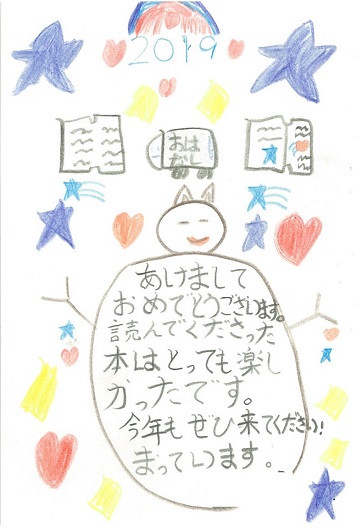 2019
おは
なし
あけまして
おめでとうございます。
読んでくださった
本はとっても楽し
かったです。
今年もぜひ来てください!
まっています。